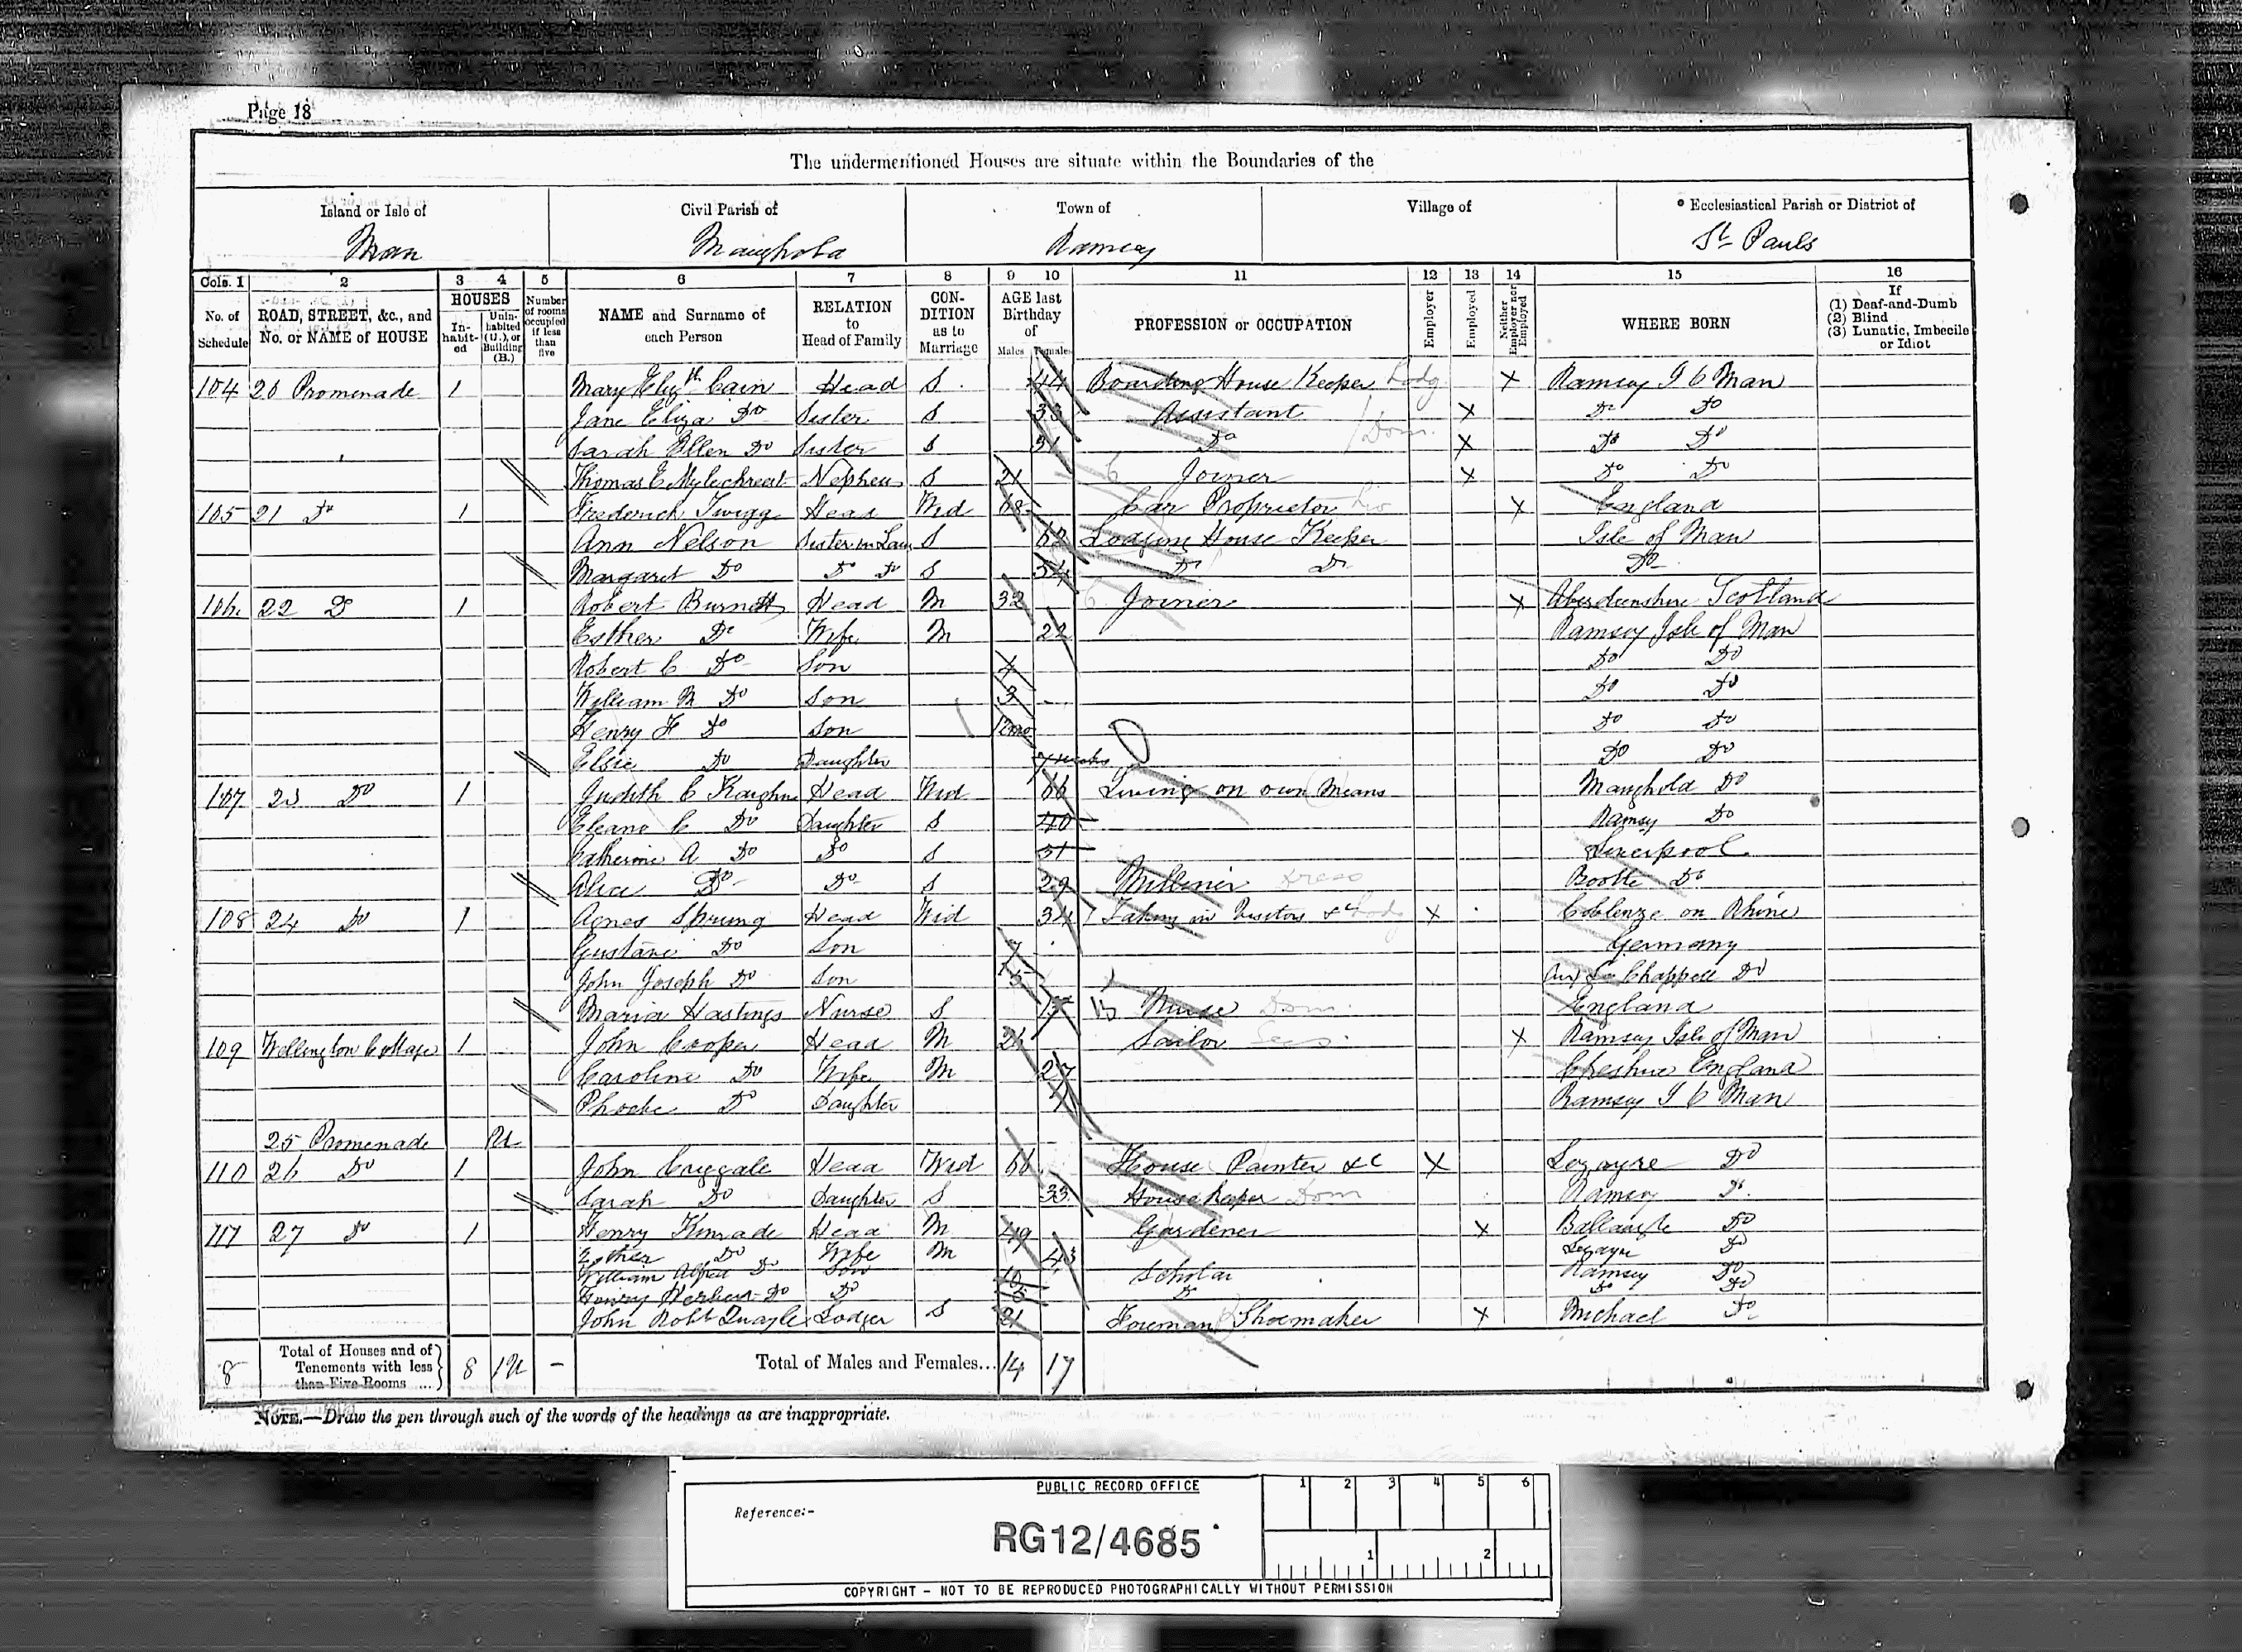 Page 18
The undermentioned Houses are situate within the Boundaries of the
Island or Isle of Civil Parish of Town of Village of Ecclesiastical Parish or District of
Man Maughold Ramsey St Pauls
Cols. 1 2 3 4 5 6 7 8 9 10 11 12 13 14 15 16
No. of Schedule ROAD, STREET, &c., and No. or NAME of HOUSE HOUSES In-habit-ed Unin-habited (U.), or Building (B.) Number of rooms occupied if less than five NAME and Surname of each Person RELATION to Head of Family CON-DITION as to Marriage AGE last Birthday of Males Females PROFESSION or OCCUPATION Employer Employed Neither Employer nor Employed WHERE BORN If (1) Deaf-and-Dumb (2) Blind (3) Lunatic, Imbecile or Idiot
104 20 Promenade 1 Mary Elizth Cain Head S 44 Boarding House Keeper Lodg X Ramsey I O Man
Jane Eliza Do Sister S 33 Assistant X Do Do
Sarah Ellen Do Sister S 31 Do Dom X Do Do
Thomas E Mylechreest Nephew S 21 Joiner X Do Do
105 21 Do 1 Frederick Twigg Head Wid 68 Car Proprietor Liv X England
Ann Nelson Sister in Law S 62 Lodging House Keeper Isle of Man
Margaret Do Do Do S 54 Do Do Do
106 22 Do 1 Robert Burnett Head M 32 Joiner X Aberdeenshire Scotland
Esther Do Wife M 22 Ramsey Isle of Man
Robert C Do Son 4 Do Do
William Do Son 3 Do Do
Henry Do Son 12mo Do Do
Elsie Do Daughter 7 weeks Do Do
107 23 Do 1 Judith C Head Wid 66 Living on own Means Maughold Do
Eleanor C Do Daughter S 40 Ramsey Do
Catherine A Do Do S 31 Liverpool
Alice Do Do S 29 Milliner Dress Bootle Do
108 24 Do 1 Agnes Sprung Head Wid 34 Taking in Visitors &c Lodg X Coblenze on Rhine
Gustave Do Son 7 Germany
John Joseph Do Son 5 Chappell Do
Maria Hastings Nurse S Nurse Dom England
109 Wellington Cottage 1 John Cooper Head M Sailor X Ramsey Isle of Man
Caroline Do Wife M 27 Cheshire England
Phoebe Do Daughter Ramsey I O Man
25 Promenade 1U
110 26 Do 1 John Creggale Head Wid 66 House Painter &c X Lezayre Do
Sarah Do Daughter S 33 Housekeeper Dom Ramsey Do
111 27 Do 1 Henry Kinrade Head M 49 Gardener X Ballaugh Do
Esther Do Wife M 43 Lezayre Do
William Alfred Do Son 10 Scholar Ramsey Do
Henry Herbert Do Do 5 Do Do Do
John Robt Quayle Lodger S 21 Foreman Shoemaker X Michael Do
8 Total of Houses and of Tenements with less than Five Rooms ... 8 1U - Total of Males and Females... 14 17
NOTE.—Draw the pen through such of the words of the headings as are inappropriate.
PUBLIC RECORD OFFICE 1 2 3 4 5 6
Reference:-
RG12/4685
1 2
COPYRIGHT - NOT TO BE REPRODUCED PHOTOGRAPHICALLY WITHOUT PERMISSION